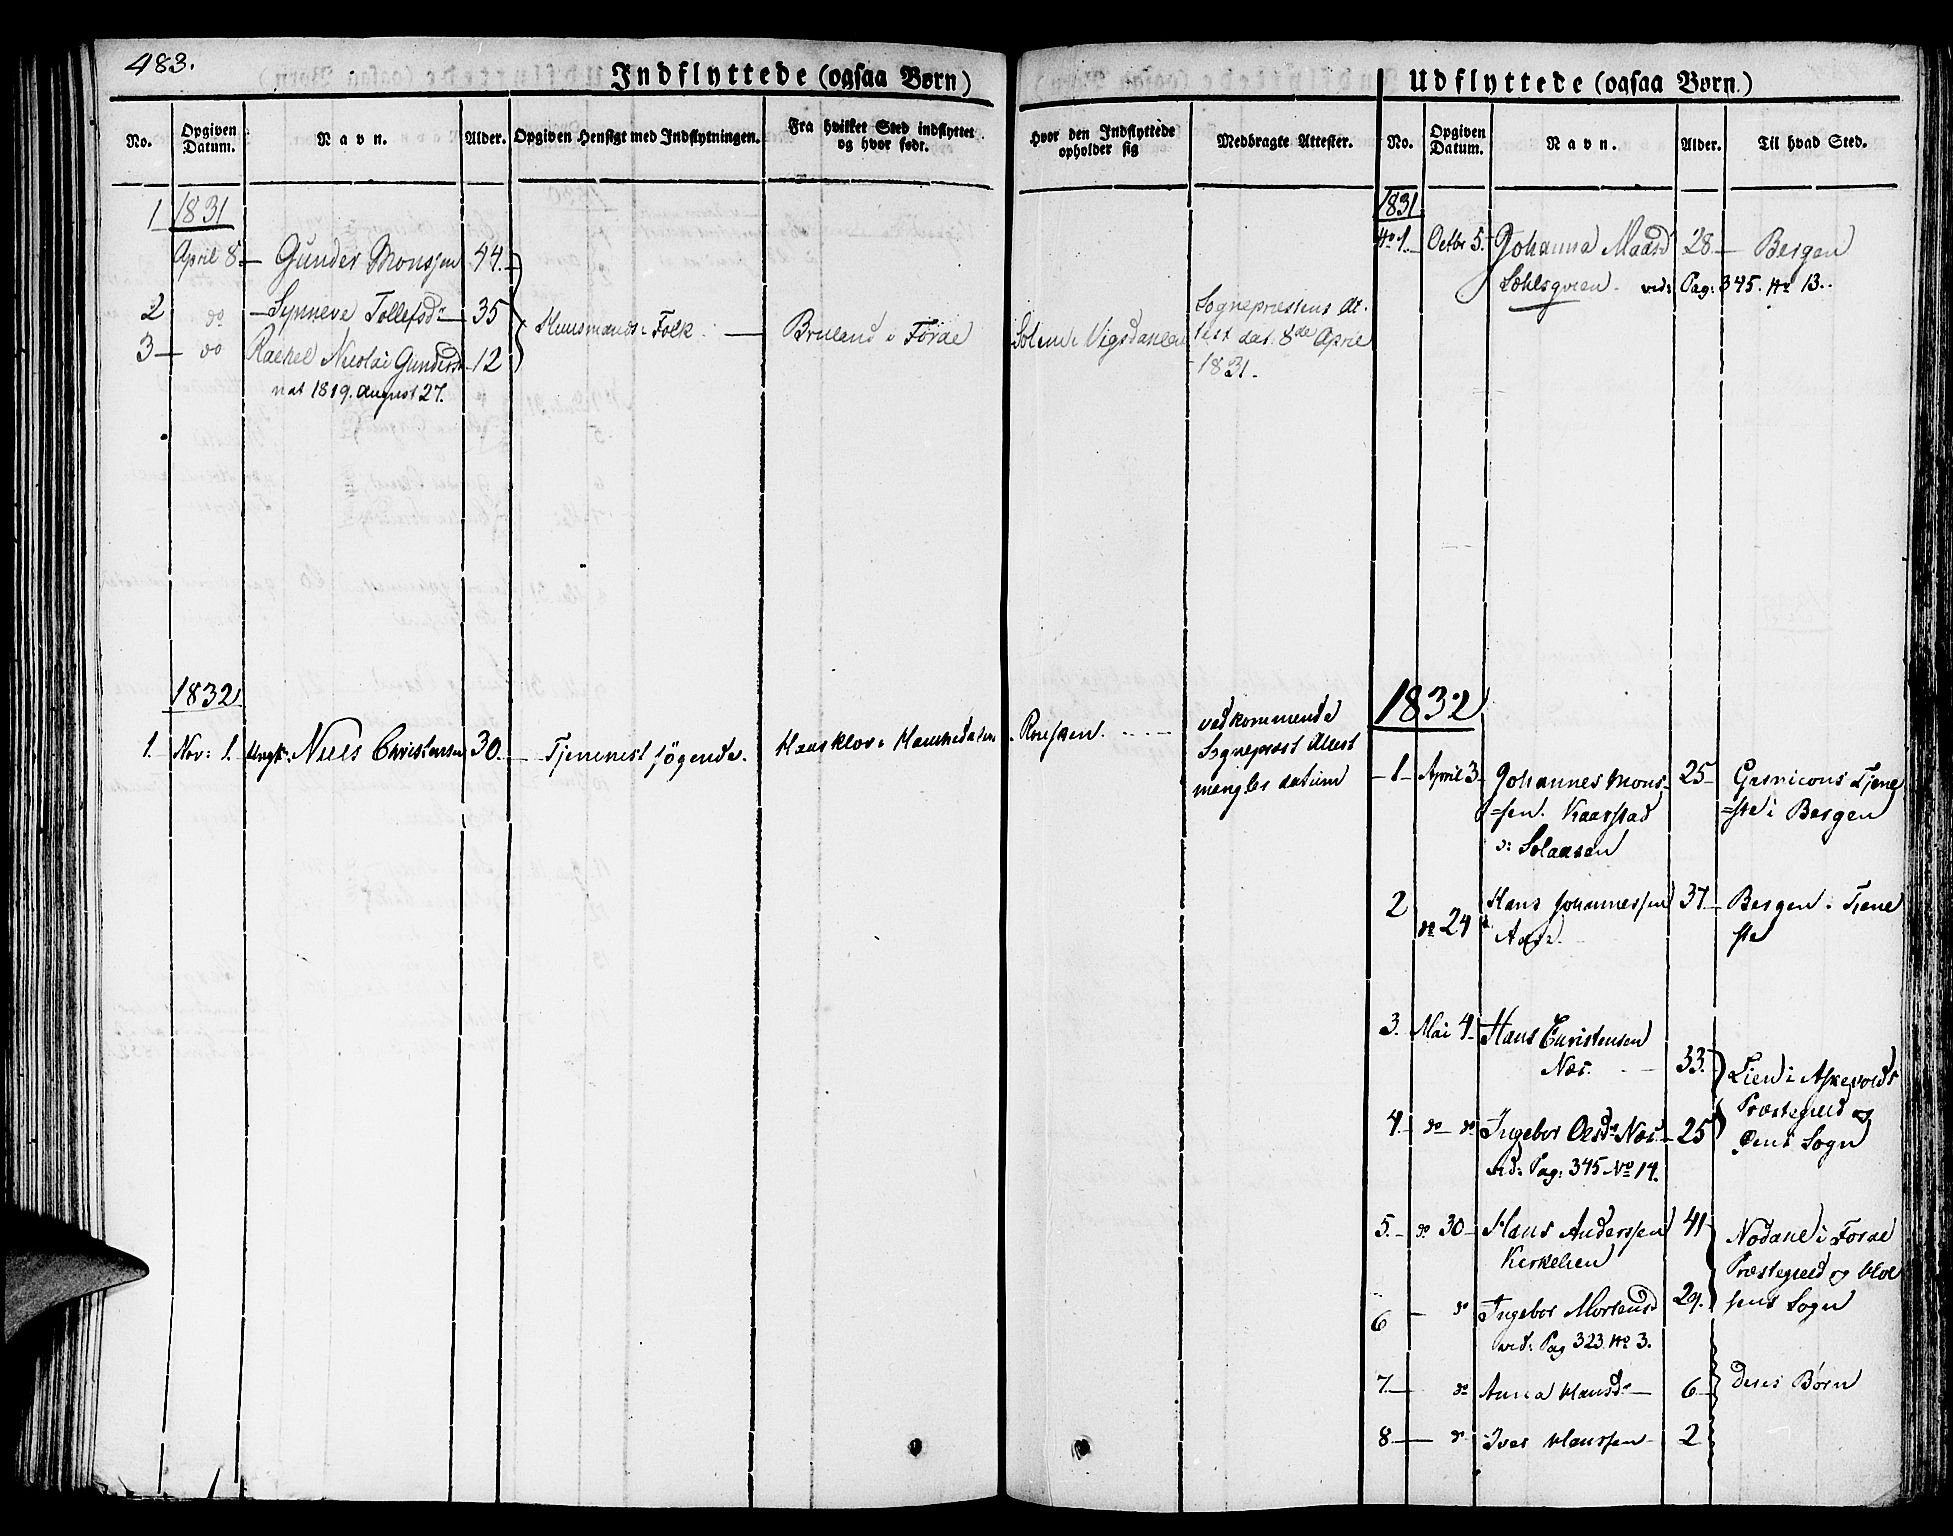 483.
Indflyttede (ogsaa Børn)
No. Opgiven Datum. Navn. Alder. Opgiven Hensigt med Indflytningen. Fra hvilket Sted indflyttet og hvor født. Hvor den Indflyttede opholder sig Medbragte Attester.
1 1831
April 8. Gunder Monssen 44.
2 do Synneve Tollefsdr 35 Huusmands Folk Bruland i Førde Solem i Vigsdalen Sognepræstens At-
3 do Rachel Nicolai Gundersd 12 test dat. 8de April
nat 1819. August 27. 1831.
1832
1. Nov: 1. Ungk: Niels Christensen 30. Tjenenest søgende. Haukedalen vedkommende
Sognepræst Attest
mangler datum
Udflyttede (ogsaa Børn.)
No. Opgiven Datum. Navn. Alder. Til hvad Sted.
1831
No 1. Octbr 5. Johanna Maasd 28 Bergen
vid: Pag: 345. No 13.
1832
1 April 3 Johannes Mons- 25 Garnisons Tjene
=sen. Kaarstad =ste i Bergen
2 do 24 Hans Johannessen 37 Bergen. Tjene
ste
3. Mai 4 Hans Christensen
Næs. 33. Lien i Askevolds
Præstegield og
4. do do Ingebor Olsdr Næs 25 Sogn
vid: Pag: 345 No 14.
5. do 30 Hans Anderssen 41 i Førde
Kirkelien Præstegield og Hol
6 do Ingebor Mortensd 29. sens Sogn
vid: Pag 323 No 3.
7 do Anna Hansdr 6 Deres Børn
8 do Iver Hanssen 2